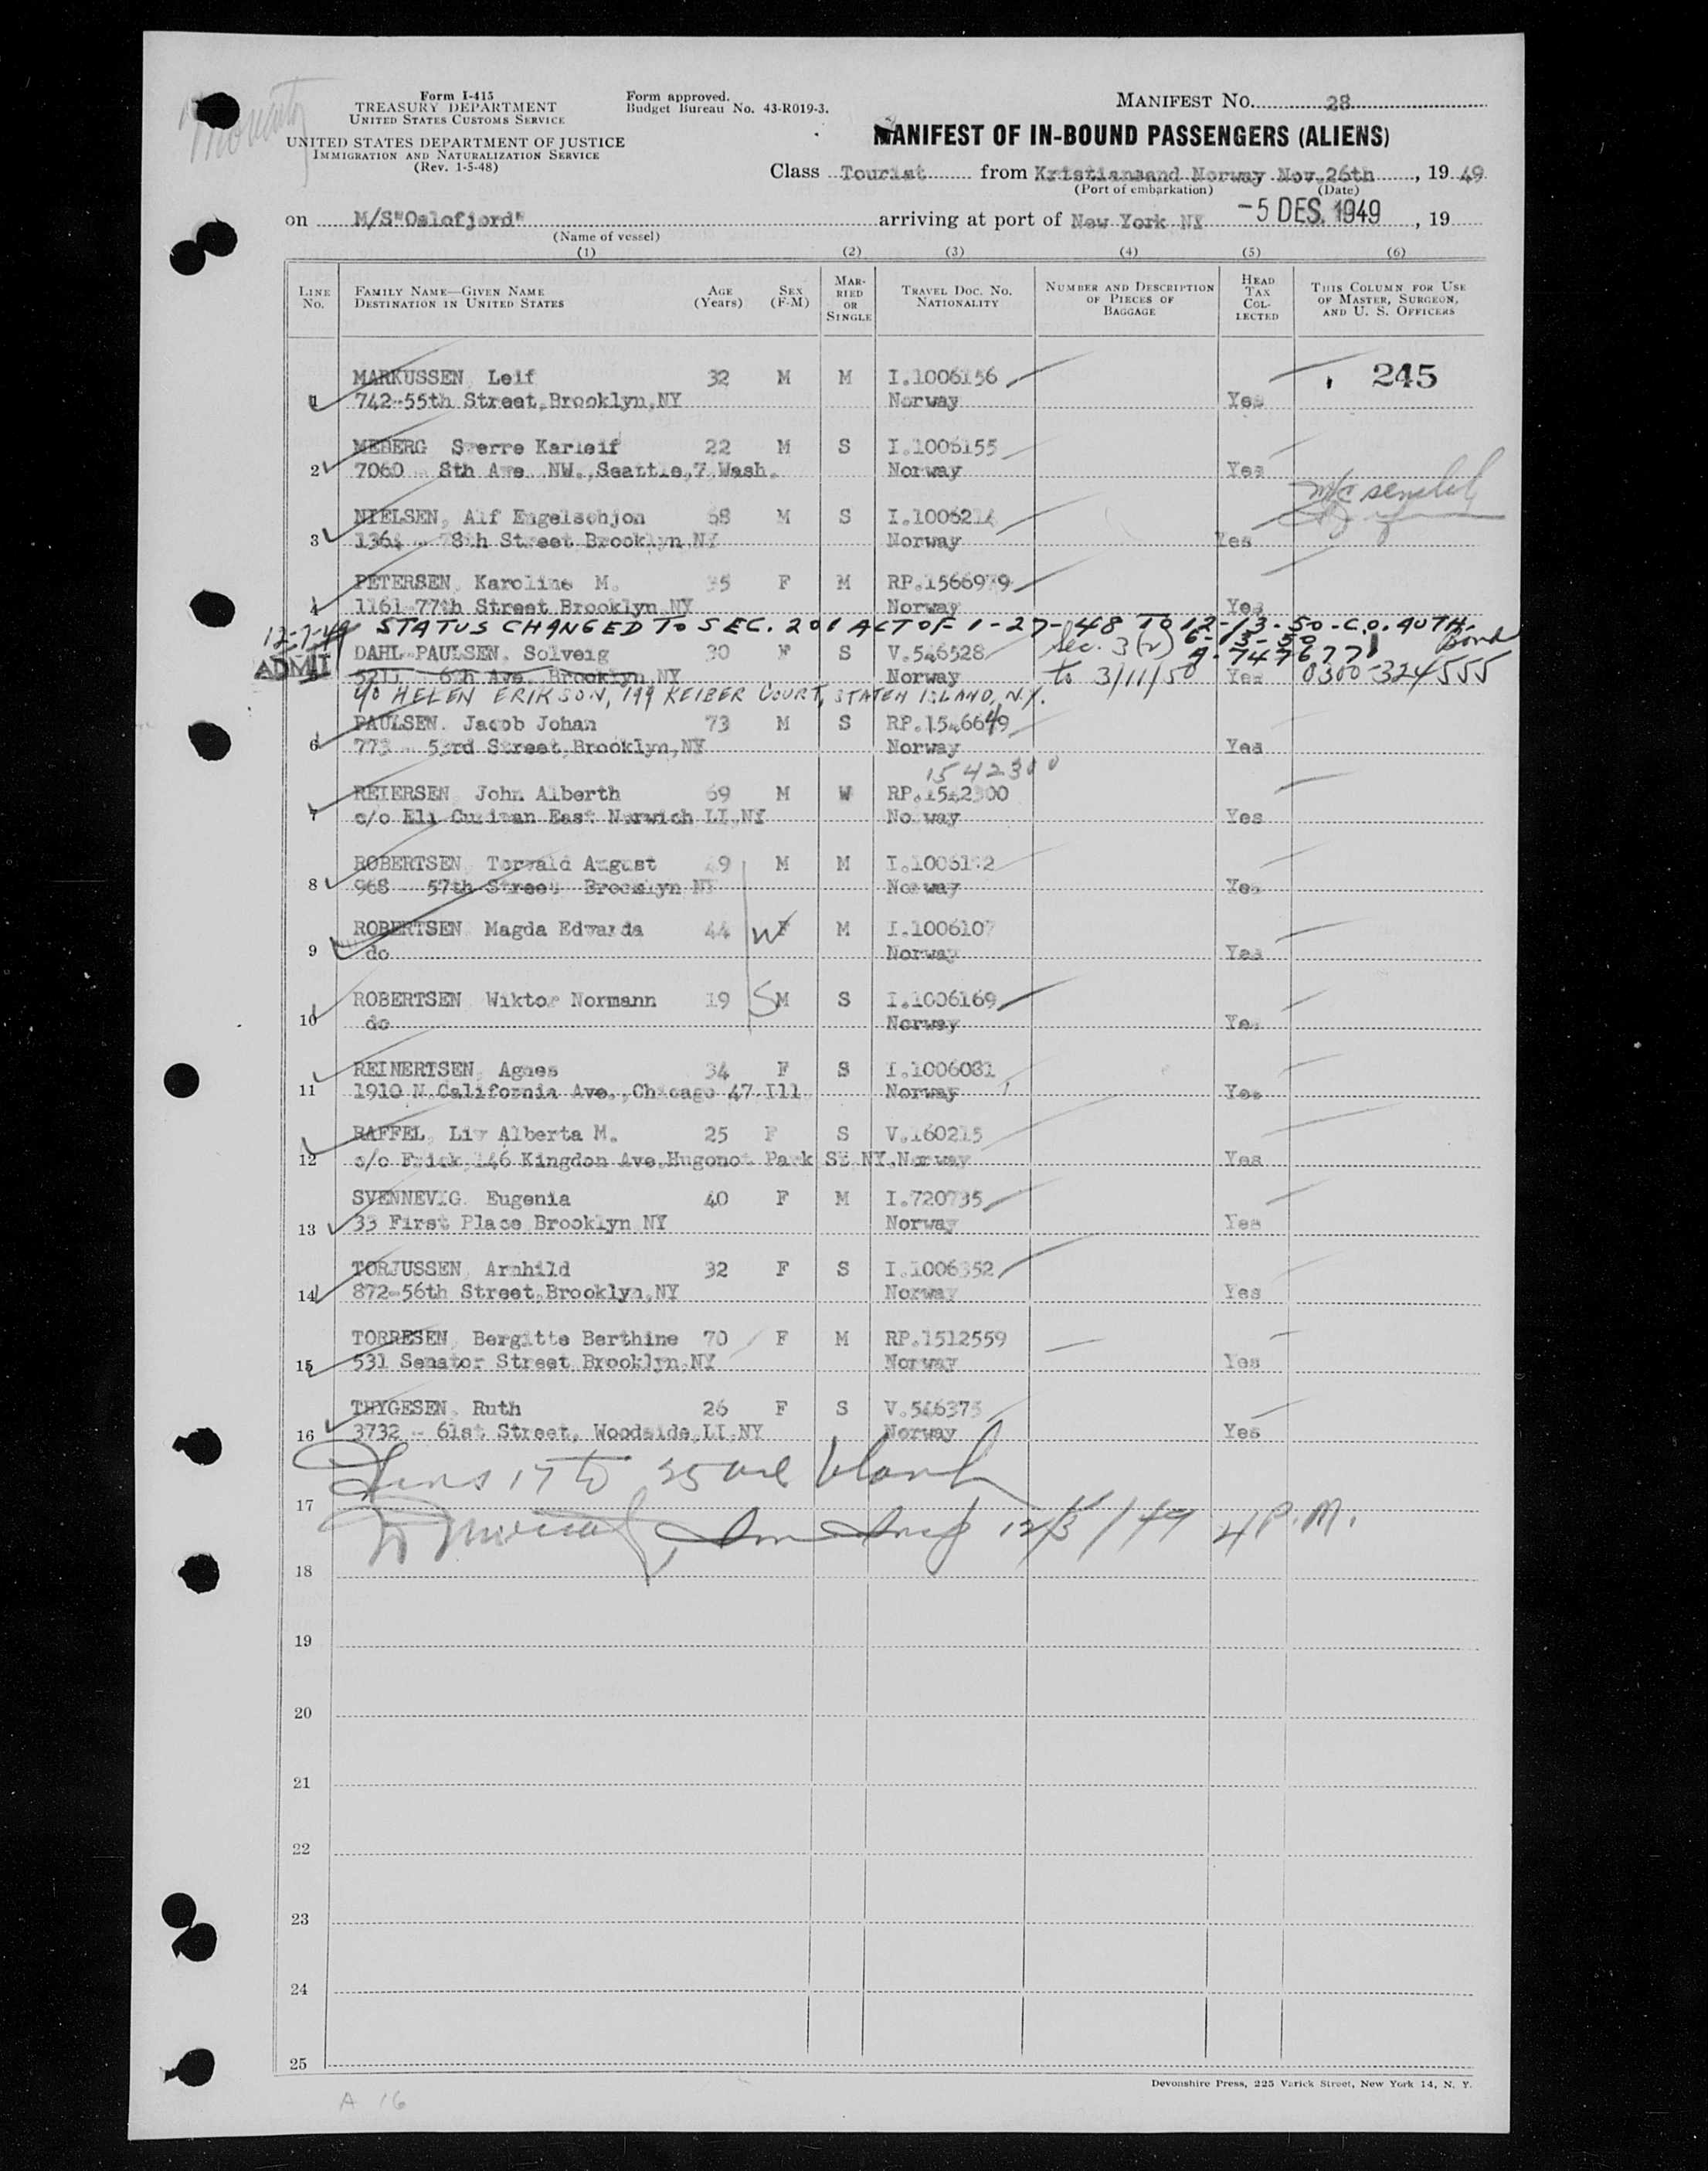 Form I-415
TREASURY DEPARTMENT
UNITED STATES CUSTOMS SERVICE
UNITED STATES DEPARTMENT OF JUSTICE
IMMIGRATION AND NATURALIZATION SERVICE
(Rev. 1-5-48)
Form approved.
Budget Bureau No. 43-R019-3.
MANIFEST NO. 28
MANIFEST OF IN-BOUND PASSENGERS (ALIENS)
Class Tourist from Kristiansand Norway Nov.26th, 19 49
(Port of embarkation) (Date)
on M/S"Oslofjord" arriving at port of New York NY -5 DES. 1949, 19
(Name of vessel)
(1) (2) (3) (4) (5) (6)
LINE NO. FAMILY NAME—GIVEN NAME DESTINATION IN UNITED STATES AGE (Years) SEX (F-M) MARRIED OR SINGLE TRAVEL DOC. NO. NATIONALITY NUMBER AND DESCRIPTION OF PIECES OF BAGGAGE HEAD TAX COLLECTED THIS COLUMN FOR USE OF MASTER, SURGEON, AND U. S. OFFICERS
MARKUSSEN, Leif 32 M M I.1006156 245
1 742-55th Street, Brooklyn, NY Norway Yes
MEBERG Sverre Karleif 22 M S I.1006155
2 7060 8th Ave. NW., Seattle, 7, Wash. Norway Yes
NIELSEN, Alf Engelschjon 68 M S I.100621
3 78th Street Brooklyn NY Norway Yes
PETERSEN, Karoline M. 35 F M RP.1566979
4 1161-77th Street Brooklyn NY Norway Yes
12-7-49 STATUS CHANGED TO SEC. 201 ACT OF 1-27-48 TO 12-13-50-C.O. AUTH.
6-13-50 Bond
ADMIT DAHL-PAULSEN, Solveig 30 F S V.546528 Sec. 3(2) A-7477677
5 5211 6th Ave. Brooklyn, NY Norway to 3/11/50 Yes 0300-324555
c/o HELEN ERIKSON, 199 KEIBER COURT, STATEN ISLAND, N.Y.
PAULSEN, Jacob Johan 73 M S RP.1546649
6 773 53rd Street, Brooklyn, NY Norway Yes
1542300
REIERSEN, John Alberth 69 M W RP.1542300
7 c/o Eli East Norwich LI, NY Norway Yes
ROBERTSEN Torvald August 49 M M
8 968 57th Street Brooklyn NY Norway Yes
ROBERTSEN Magda Edvarda 44 W F M I.1006107
9 do Norway Yes
ROBERTSEN Wiktor Normann 19 S M S I.1006169
10 do Norway Yes
REINERTSEN, Agnes 34 F S I.1006081
11 1910 N.California Ave., Chicago 47 Ill. Norway Yes
RAFFEL, Liv Alberta M. 25 F S V.160215
12 c/o Frick, 146 Kingdon Ave, Hugonot Park SI NY. Norway Yes
SVENNEVIG Eugenia 40 F M I.720735
13 33 First Place Brooklyn NY Norway Yes
TORJUSSEN, Arnhild 32 F S I.1006352
14 872-56th Street, Brooklyn, NY Norway Yes
TORRESEN, Bergitte Berthine 70 F M RP.1512559
15 531 Senator Street, Brooklyn, NY Norway Yes
THYGESEN, Ruth 26 F S V.546375
16 3732 - 61st Street, Woodside, LI, NY Norway Yes
Lines 17 to 25 are blank
17
Imm Insp 12/5/49 4 P.M.
18
19
20
21
22
23
24
25
Devonshire Press, 225 Varick Street, New York 14, N. Y.
A 16